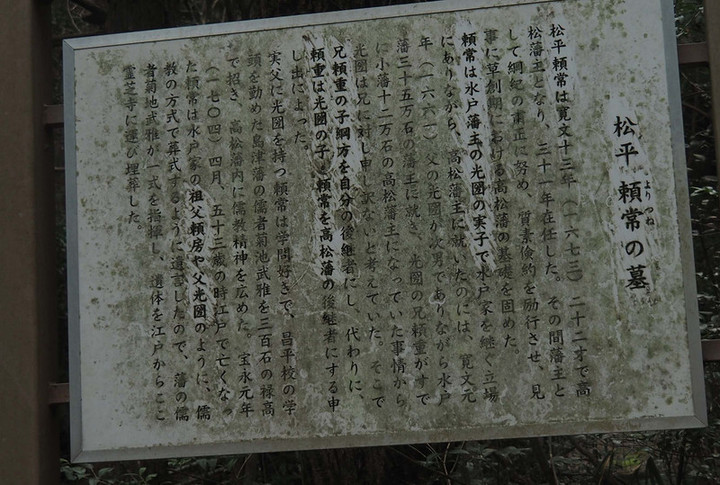 松平 頼常の墓
よりつね
松平頼常は寛文十三年(一六七三)二十二才で高
松藩主となり、三十一年在任した。その間藩主と
して綱紀の粛正に努め、質素倹約を励行させ、見
事に草創期における高松藩の基礎を固めた
頼常は水戸藩主の光圀の実子で水戸家を継ぐ立場
にありながら、高松藩主に就いたのには、寛文元
年(一六六一)父の光圀が次男でありながら水戸
藩三十五万石の藩主に就き、光圀の兄頼重がすで
に小藩十二万石の高松藩主になっていた事情から
光圀は兄に対し申し訳ないと考えていた。そこで
兄頼重の子綱方を自分の後継者にし、代わりに、
頼重は光圀の子 頼常を高松藩の後継者にする申
し出によった。
実父に光圀を持つ頼常は学問好きで、昌平校の学
頭を勤めた島津藩の儒者菊池武雅を三百石の禄高
で招き、高松藩内に儒教精神を広めた。宝永元年
(一七〇四)四月、五十三歳の時江戸で亡くなっ
た頼常は水戸家の祖父頼房や父光圀のように、儒
教の方式で葬式するように遺言したので、藩の儒
者菊地武雅が一式を指揮し、遺体を江戸からここ
霊芝寺に運び埋葬した。